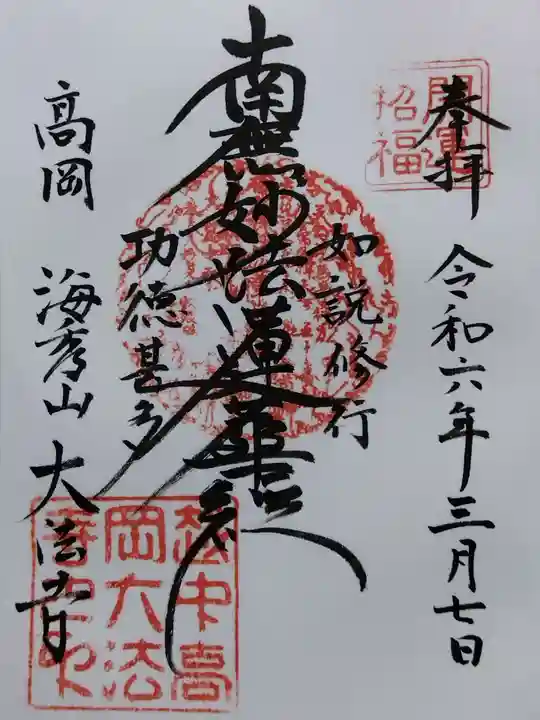 奉拝
開運
招福
令和六年三月七日
如説修行
南無妙法蓮華経
功徳甚多
高岡 海秀山 大法寺
越中高
岡大法